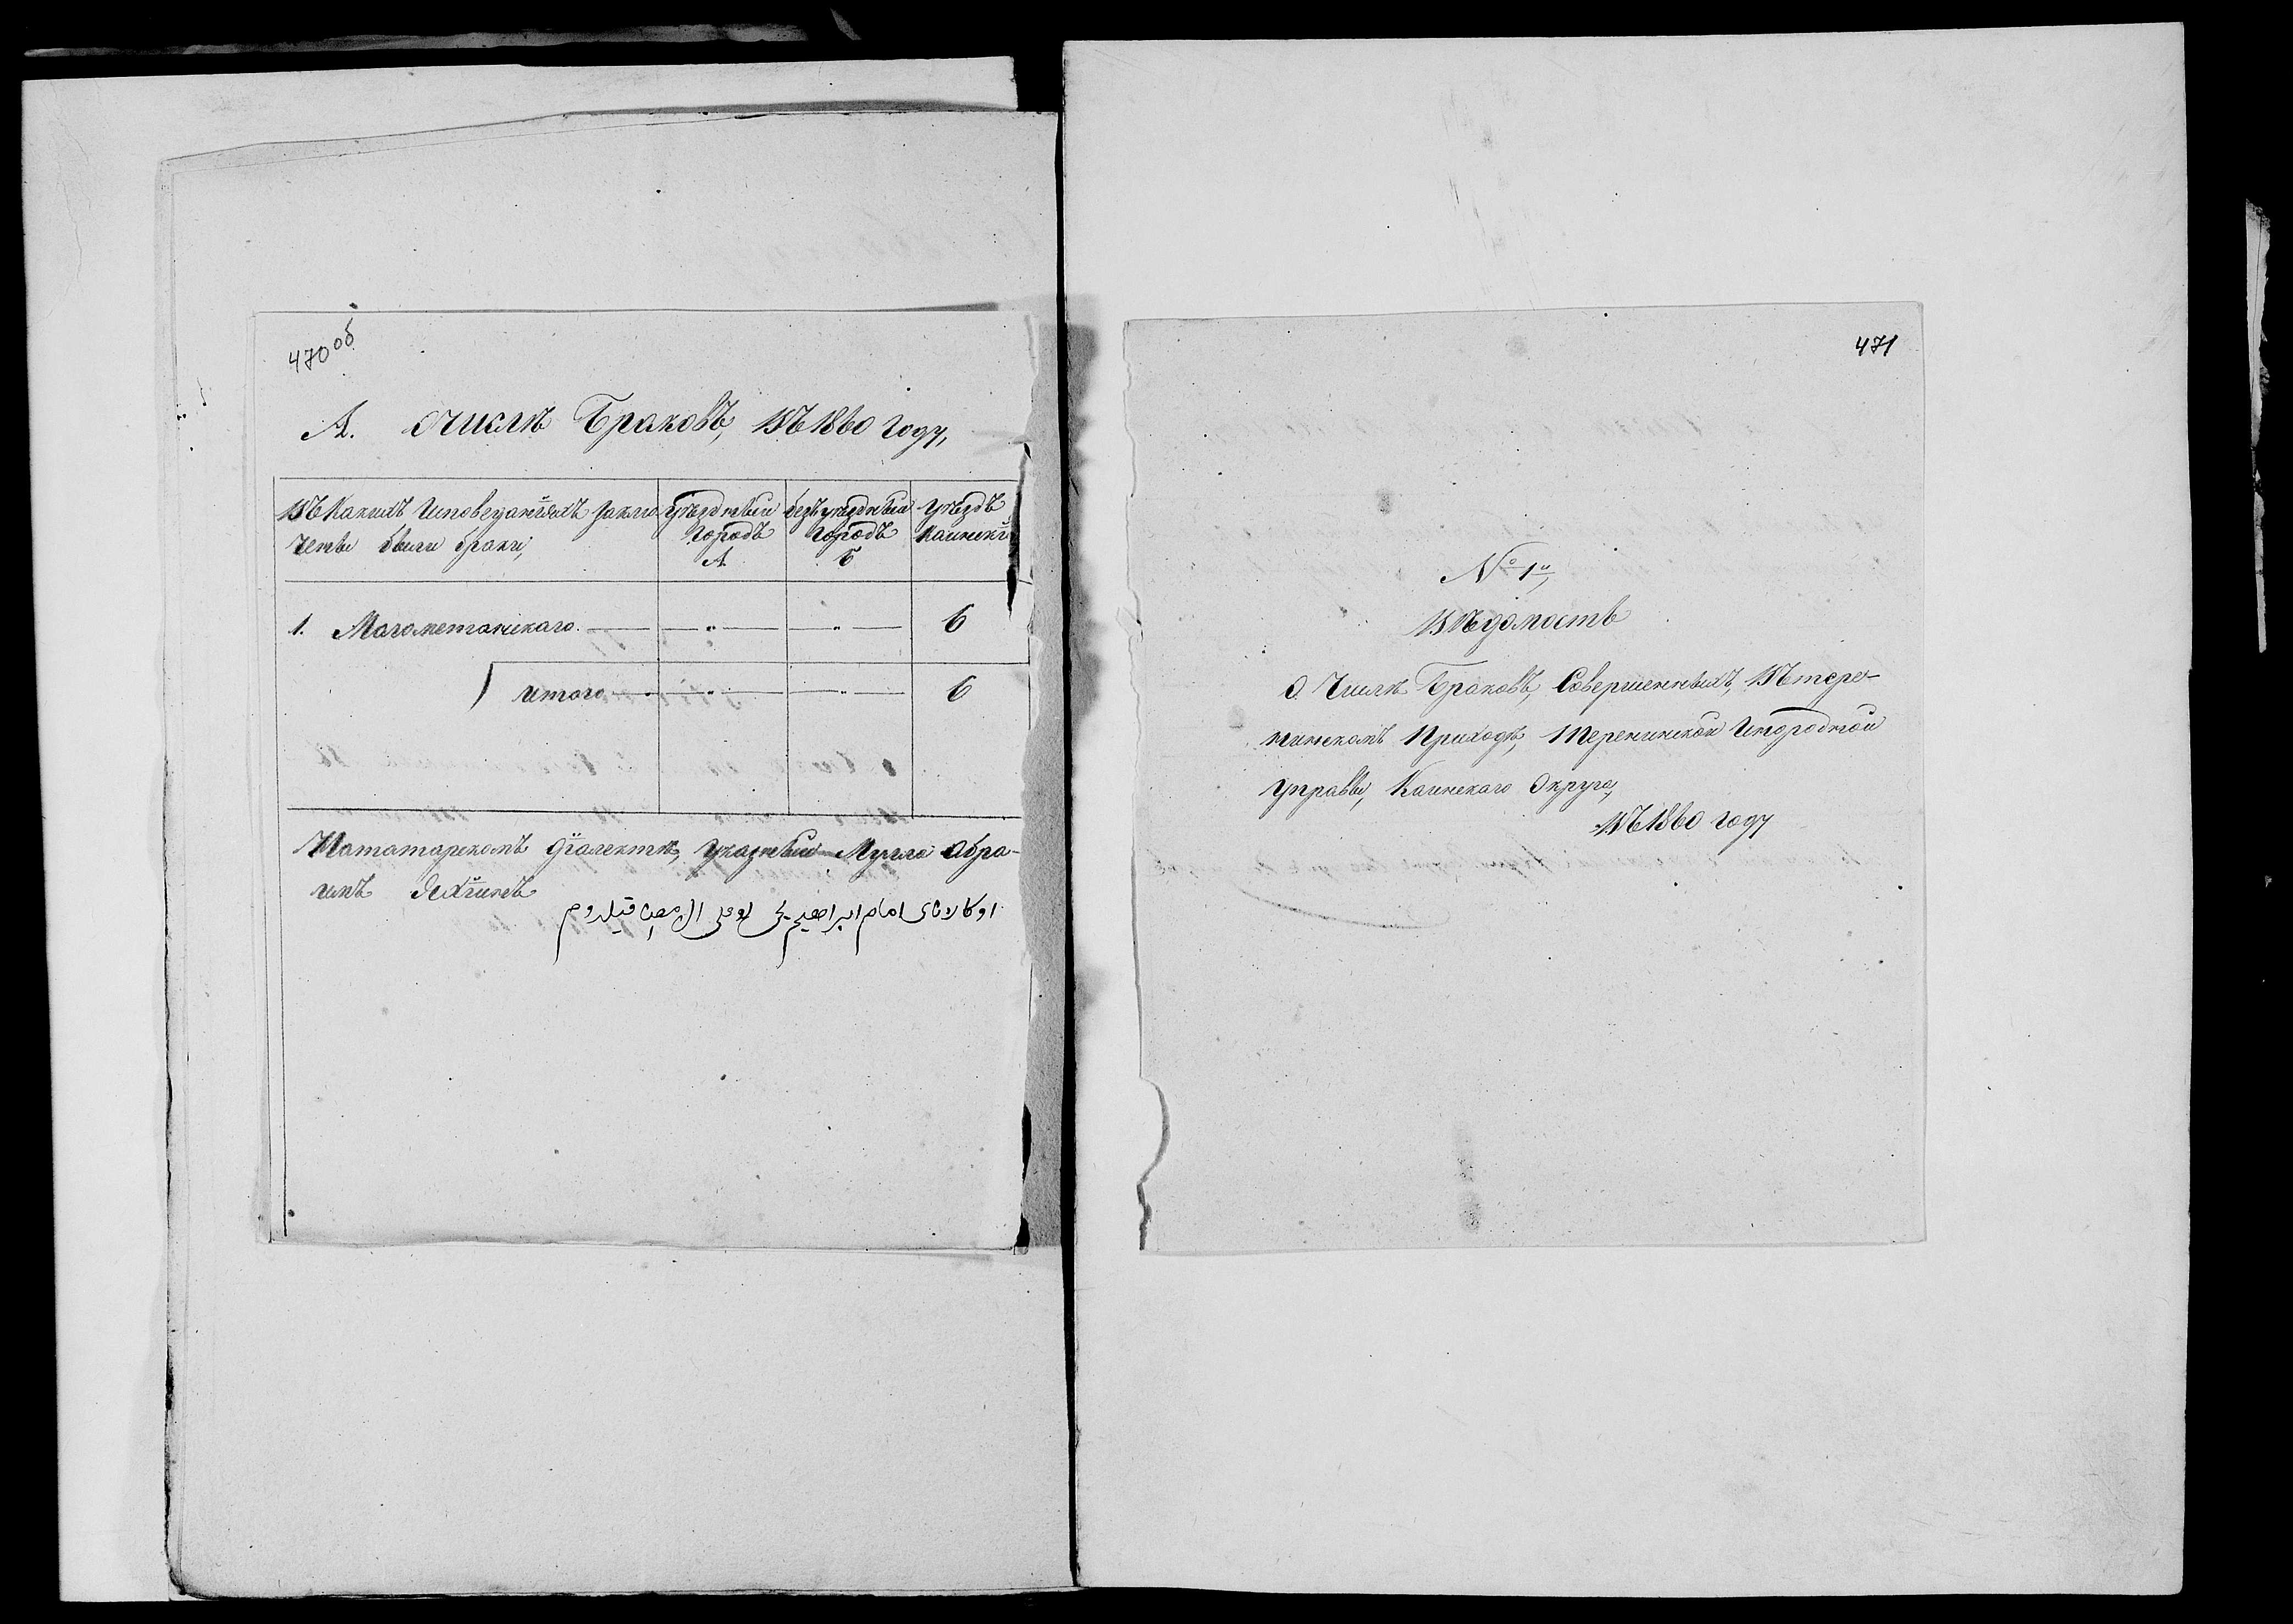 470 об
А. О числѣ Браковъ, въ 1860 году,
Въ Какихъ Исповеданіяхъ заклю
чены были браки,
Уѣздный
Городъ
А
безъуѣздный
городъ
Б
Уѣздъ
Каинскій
1. Магометанскаго — „ — „ — 6
итого — „ — „ — 6
На татарскомъ діалектѣ, указный Мулла Абра-
имъ
امام ابراهيم
471
№ 1й,
Вѣдомость
О Числѣ Браковъ, Совершенныхъ, Въ тере-
нинскомъ Приходѣ, Теренинской Инородной
управы, Каинскаго Округа,
въ 1860 году